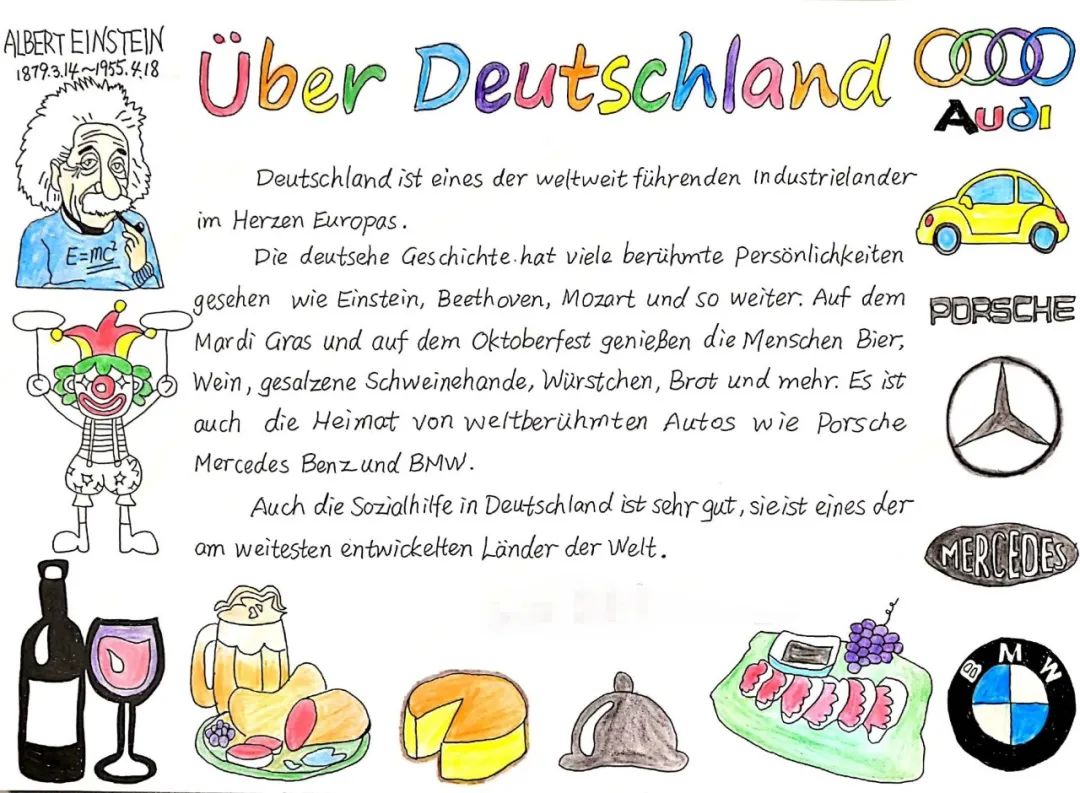 ALBERT EINSTEIN
1879.3.14~1955.4.18
Über Deutschland
Audi
E=mc²
Deutschland ist eines der weltweit führenden Industrielander
im Herzen Europas.
Die deutsehe Geschichte. hat viele berühmte Persönlichkeiten
gesehen wie Einstein, Beethoven, Mozart und so weiter. Auf dem
Mardi Gras und auf dem Oktoberfest genießen die Menschen Bier,
Wein, gesalzene Schweinehande, Würstchen, Brot und mehr. Es ist
auch die Heimat von weltberühmten Autos wie Porsche
Mercedes Benz und BMW.
Auch die Sozialhilfe in Deutschland ist sehr gut, sie ist eines der
am weitesten entwickelten Länder der Welt.
PORSCHE
MERCEDES
BMW